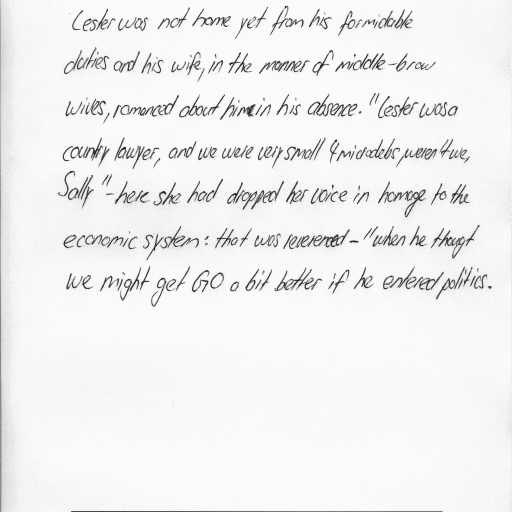 Lester was not home yet from his formidable
duties and his wife, in the manner of middle-brow
wives, romanced about him in his absence. "Lester was a
country lawyer, and we were very small & microdebs, weren't we,
Sally" - here she had dropped her voice in homage to the
economic system: that was reverenced - "when he thougt
we might get GO a bit better if he entered politics.